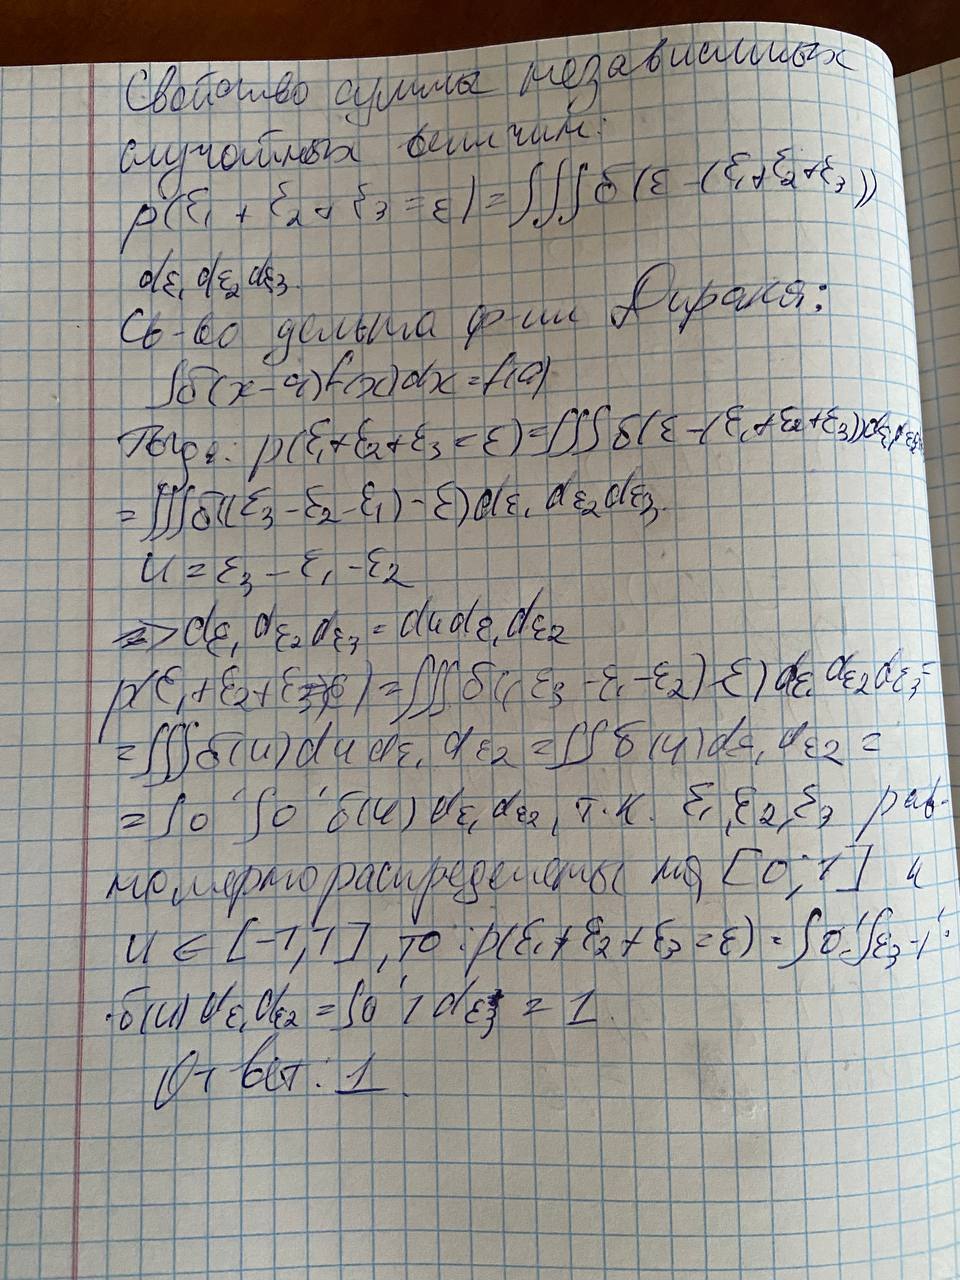 Свойство суммы независимых
случайных величин:
p(ξ₁ + ξ₂ + ξ₃ = ε) = ∫∫∫ δ(ε - (ξ₁ + ξ₂ + ξ₃))
dε₁ dε₂ dε₃.
Св-во дельта ф-ии Дирака:
∫δ(x-a)f(x)dx = f(a)
Тогда: p(ξ₁+ξ₂+ξ₃ = ε) = ∫∫∫ δ(ε-(ξ₁+ξ₂+ξ₃))dε₁dε₂
= ∫∫∫δ((ξ₃-ξ₂-ξ₁)-ε)dε₁ dε₂dε₃.
u = ε₃ - ε₁ - ε₂
=> dε₁ dε₂ dε₃ = du dε₁ dε₂
p(ξ₁+ξ₂+ξ₃=ε) = ∫∫∫ δ((ε₃-ε₁-ε₂)-ε) dε₁ dε₂ dε₃ =
= ∫∫∫ δ(u) du dε₁ dε₂ = ∫∫ δ(u) dε₁ dε₂ =
= ∫0¹ ∫0¹ δ(u) dε₁ dε₂, т.к. ξ₁, ξ₂, ξ₃ рав-
номерно распределены на [0; 1] и
u ∈ [-1, 1], то: p(ξ₁+ξ₂+ξ₃ = ε) = ∫0¹ ∫ε₃-1¹ ·
·δ(u) dε₁ dε₂ = ∫0¹ 1 dε₃ = 1.
Ответ: 1.